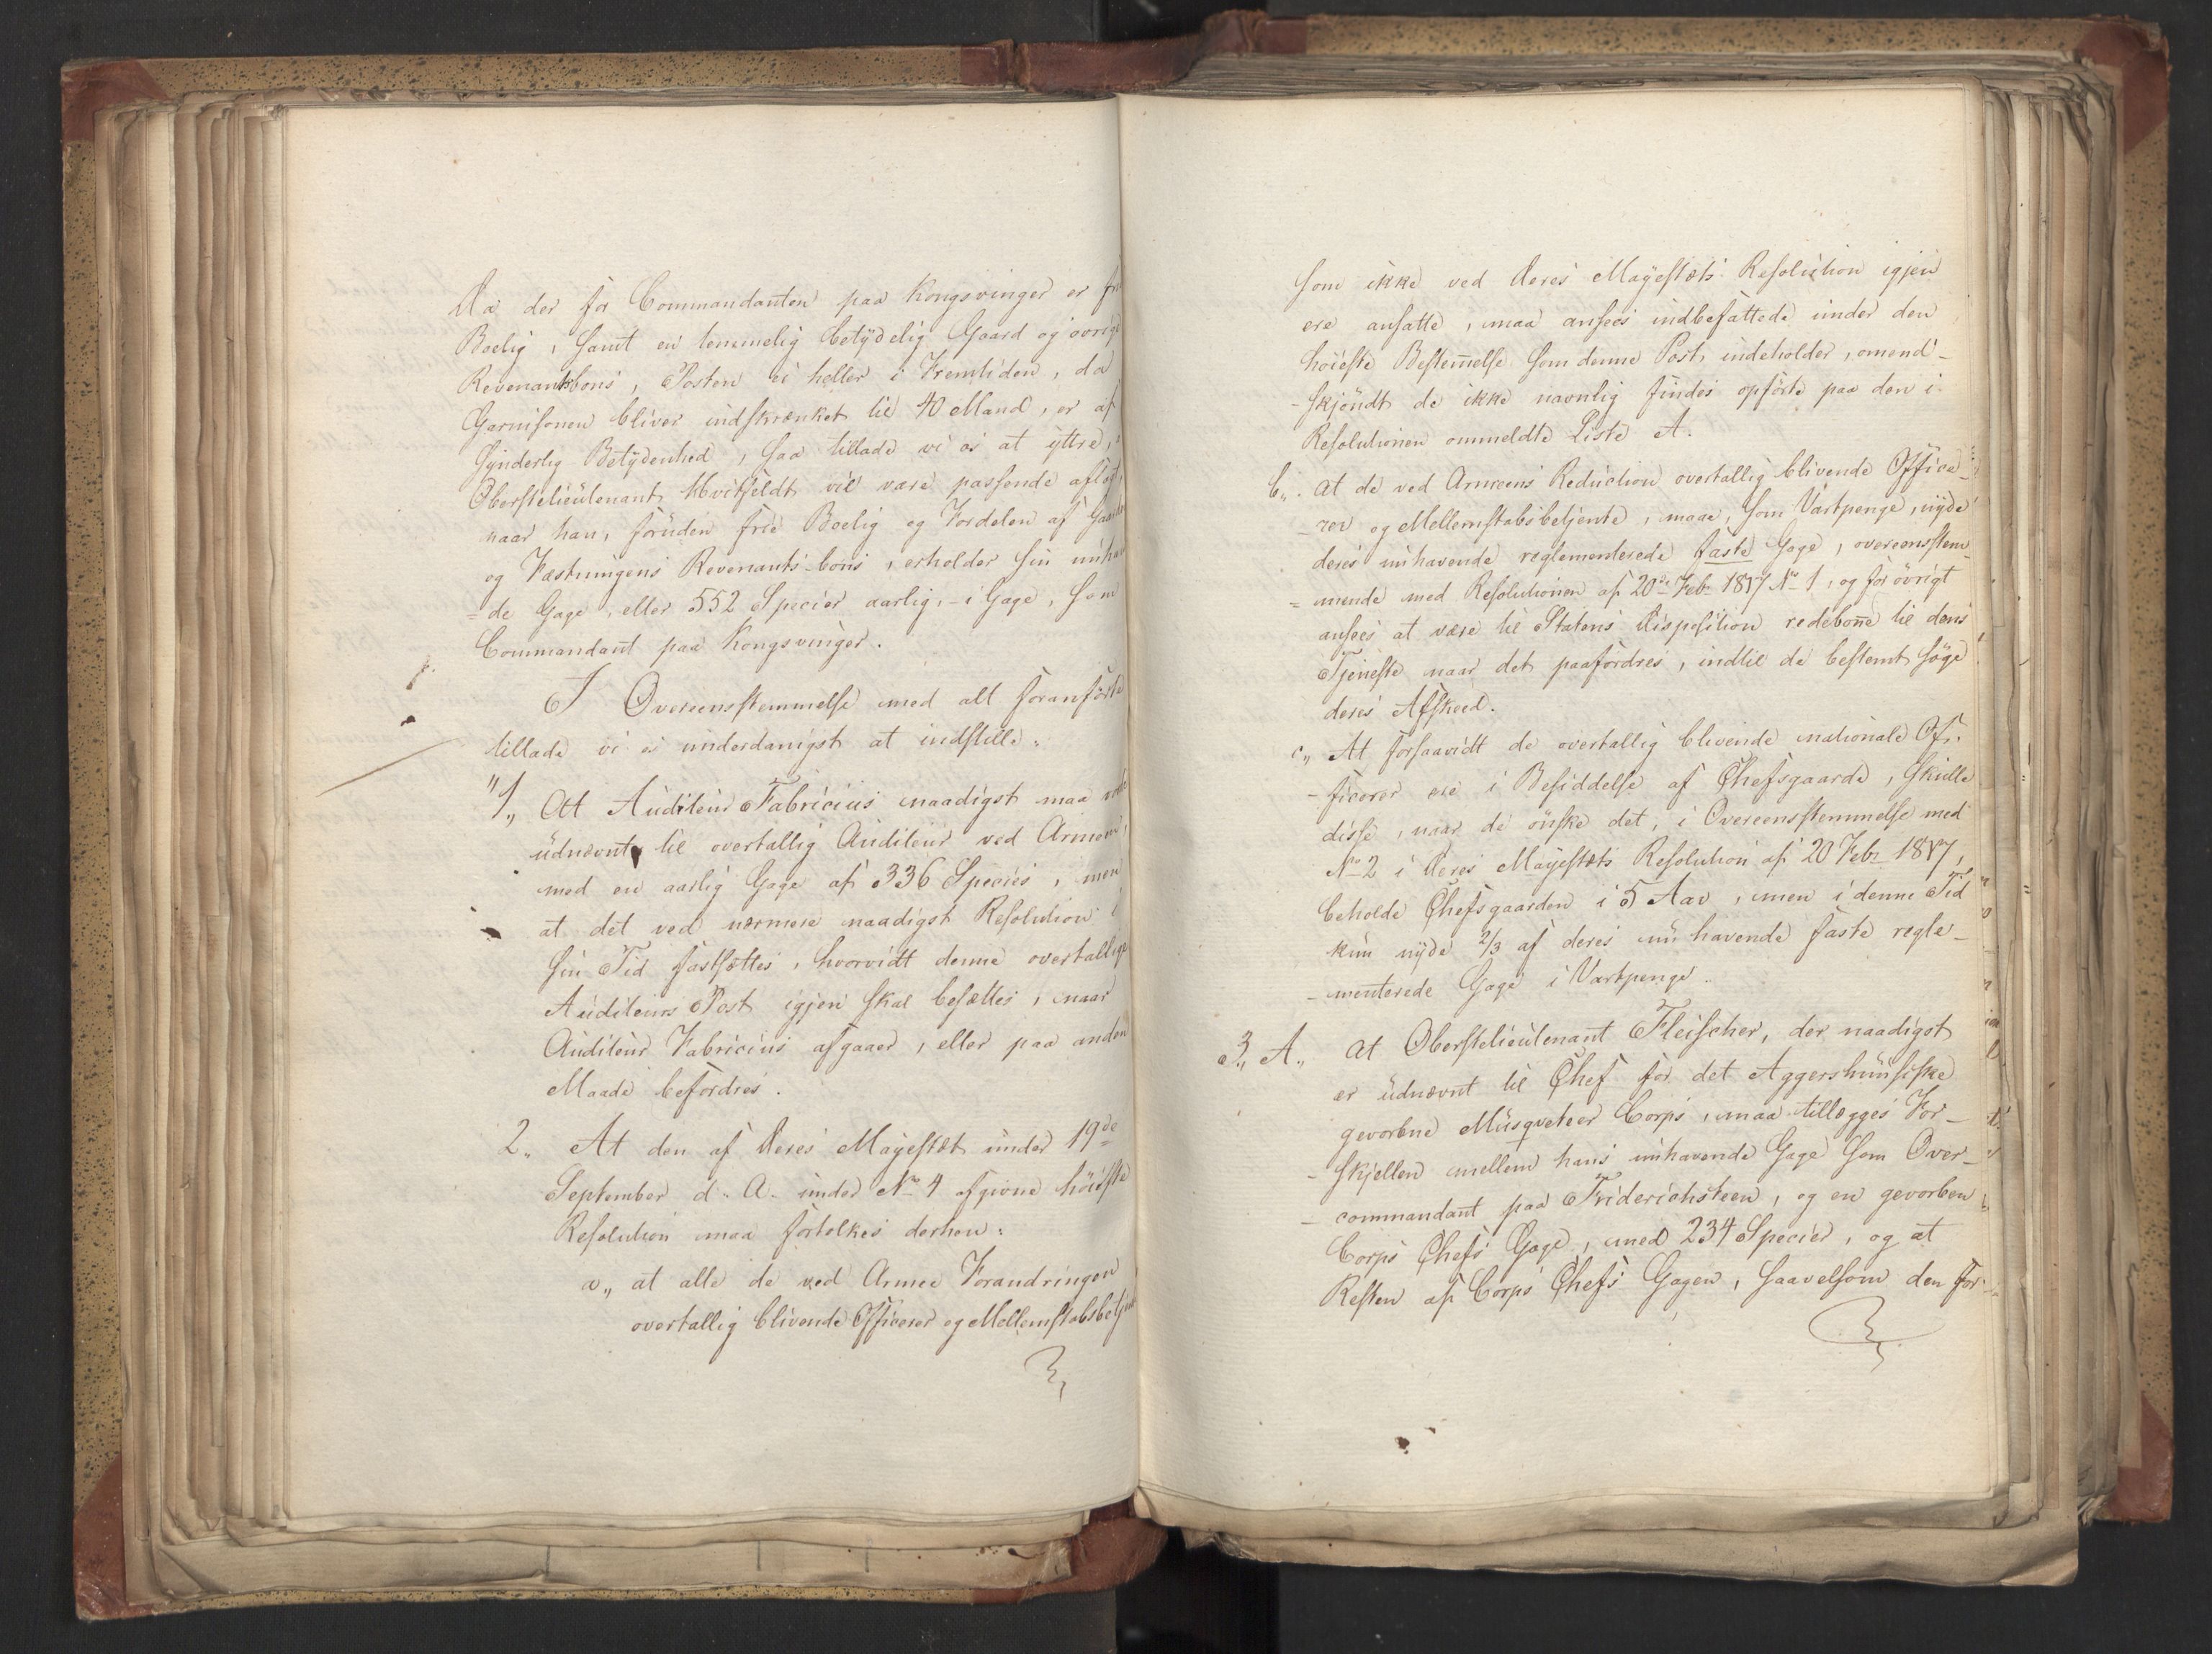 Da der for Commandanten paa Kongsvinger er fri
Boelig, samt en temmelig betydelig Gaard og övrige
Revenantsbons, Posten ei heller i Fremtiden, da
Garnisonen bliver indskrænket til 40 Mand, er af
synderlig Betydenhed, saa tillade vi os at yttre,
Oberstelieutenant Hvitfeldt vil være passende aflagt,
naar han, foruden frie Boelig og Fordelen af Gaarden
og Fæstningens Revenants-bons, erholder sin nuhaven
=de Gage, eller 552 Species aarlig, i Gage, som
Commandant paa Kongsvinger.
I Overeensstemmelse med alt foranförte
tillade vi os underdanigst at indstille:
"1,, At Auditeur Fabricius naadigst maa vorde
udnævnt til overtallig Auditeur ved Armeen,
med en aarlig Gage af 336 Species, men
at det ved nærmere naadigst Resolution i
sin Tid fastsættes, hvorvidt denne overtallige
Auditeurs Post igjen skal besættes, naar
Auditeur Fabricius afgaaer, eller paa anden
Maade befordres.
2,, At den af Deres Mayestæt under 19de
September d. A. under No 4 afgivne höieste
Resolution maa fortolkes derhen:
a,, at alle de ved Armee Forandringen
overtallig blivende Officerer og Mellemstabsbetjente
som ikke ved Deres Mayestæts Resolution igjen
ere ansatte, maa ansees indbefattede under den
höieste Bestem̄else som denne Post indeholder, omend-
-skjöndt de ikke navnlig findes opförte paa den i
Resolutionen ommeldte Liste A.
b,, at de ved Armeens Reduction overtallig blivende Office-
-rer og Mellemstabsbetjente, maae, som Vartpenge, nyde
deres nuhavende reglementerede faste Gage, overeensstem-
=mende med Resolutionen af 20de Febr 1817 No 1, og for övrigt
ansees at være til Statens Disposition redebon̄e til dens
Tjeneste naar det paafordres, indtil de bestemt söge
deres Afskeed.
c,, At forsaavidt de overtallig blivende nationale Of-
-ficerer ere i Besiddelse af Chefsgaarde, skulle
disse, naar de önske det, i Overeensstemmelse med
No 2 i Deres Mayestæts Resolution af 20 Febr 1817,
beholde Chefsgaarden i 5 Aar, men i denne Tid
kun nyde 2/3 af deres nu havende faste regle-
-menterede Gage i Vartpenge.
3,, A,, at Oberstelieutenant Fleischer, der naadigst
er udnævnt til Chef for det Aggershuusiske
gevorbne Musqveteer Corps, maa tillægges For-
-skjellen mellem hans nuhavende Gage som Over-
-commandant paa Friderichsteen, og en gevorben
Corps Chefs Gage, med 234 Species, og at
Resten af Corps Chefs Gagen, saavelsom den for-